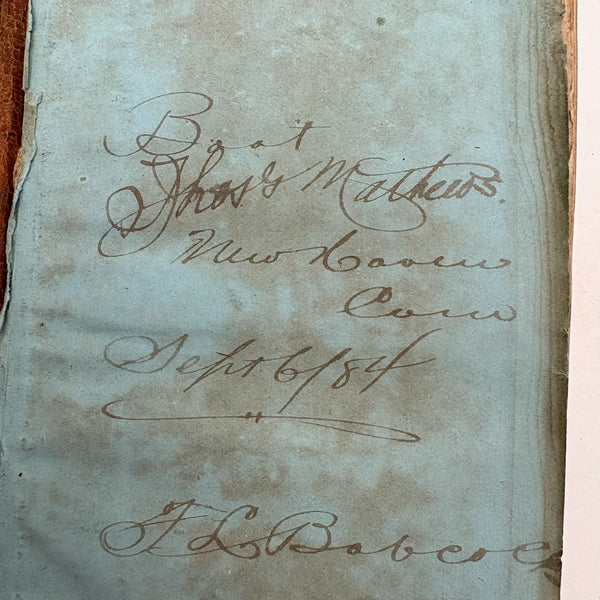 Boat
Thos's Mathews.
New Haven
Conn
Sept 6/84
F L Babcock